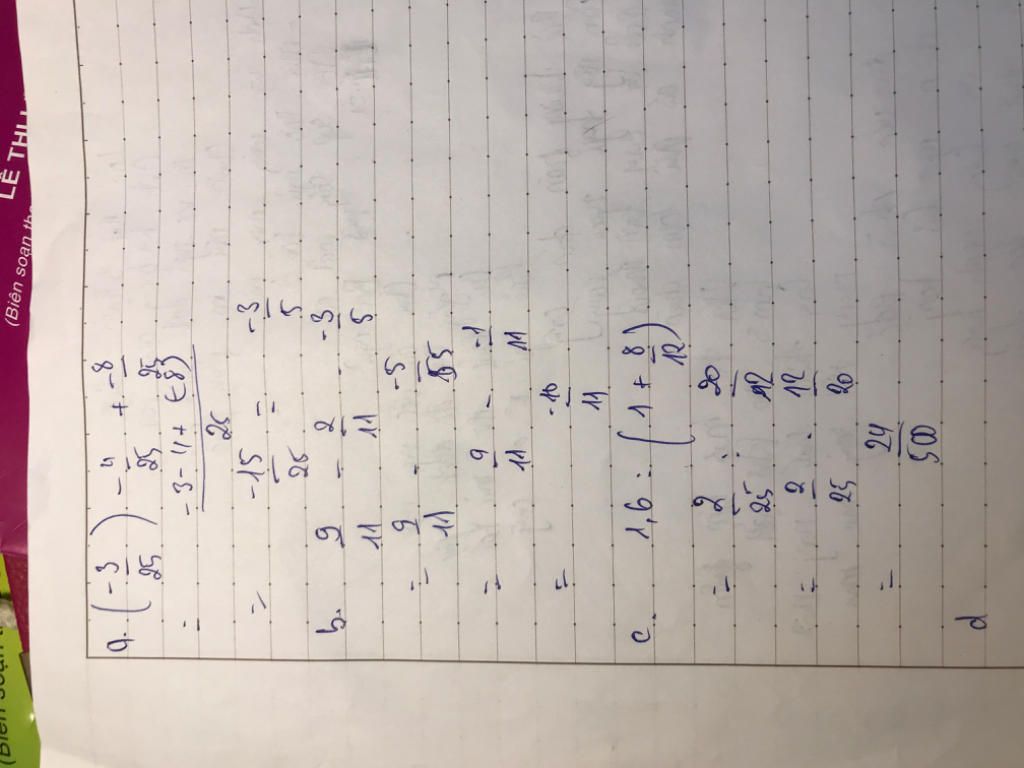 LÊ THU
(Biên soạn
(Biên soạn
a. (-3/25) - 4/25 + -8/25
= -3 - 4 + (-8) / 25
= -15/25 = -3/5
b. 9/11 - 2/11 . -3/5
= 9/11 - -5/55
= 9/11 - -1/11
= -10/11
c. 1,6 : (1 + 8/12)
= 2/25 : 20/12
= 2/25 . 12/20
= 24/500
d